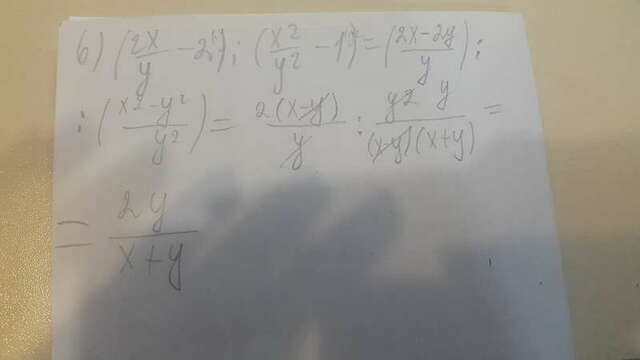 б) (2x/y - 2¹⁾) : (x²/y² - 1¹⁾) = (2x-2y/y) :
: (x²-y²/y²) = 2(x-y)/y : (x-y)(x+y)/y² =
= 2y/x+y